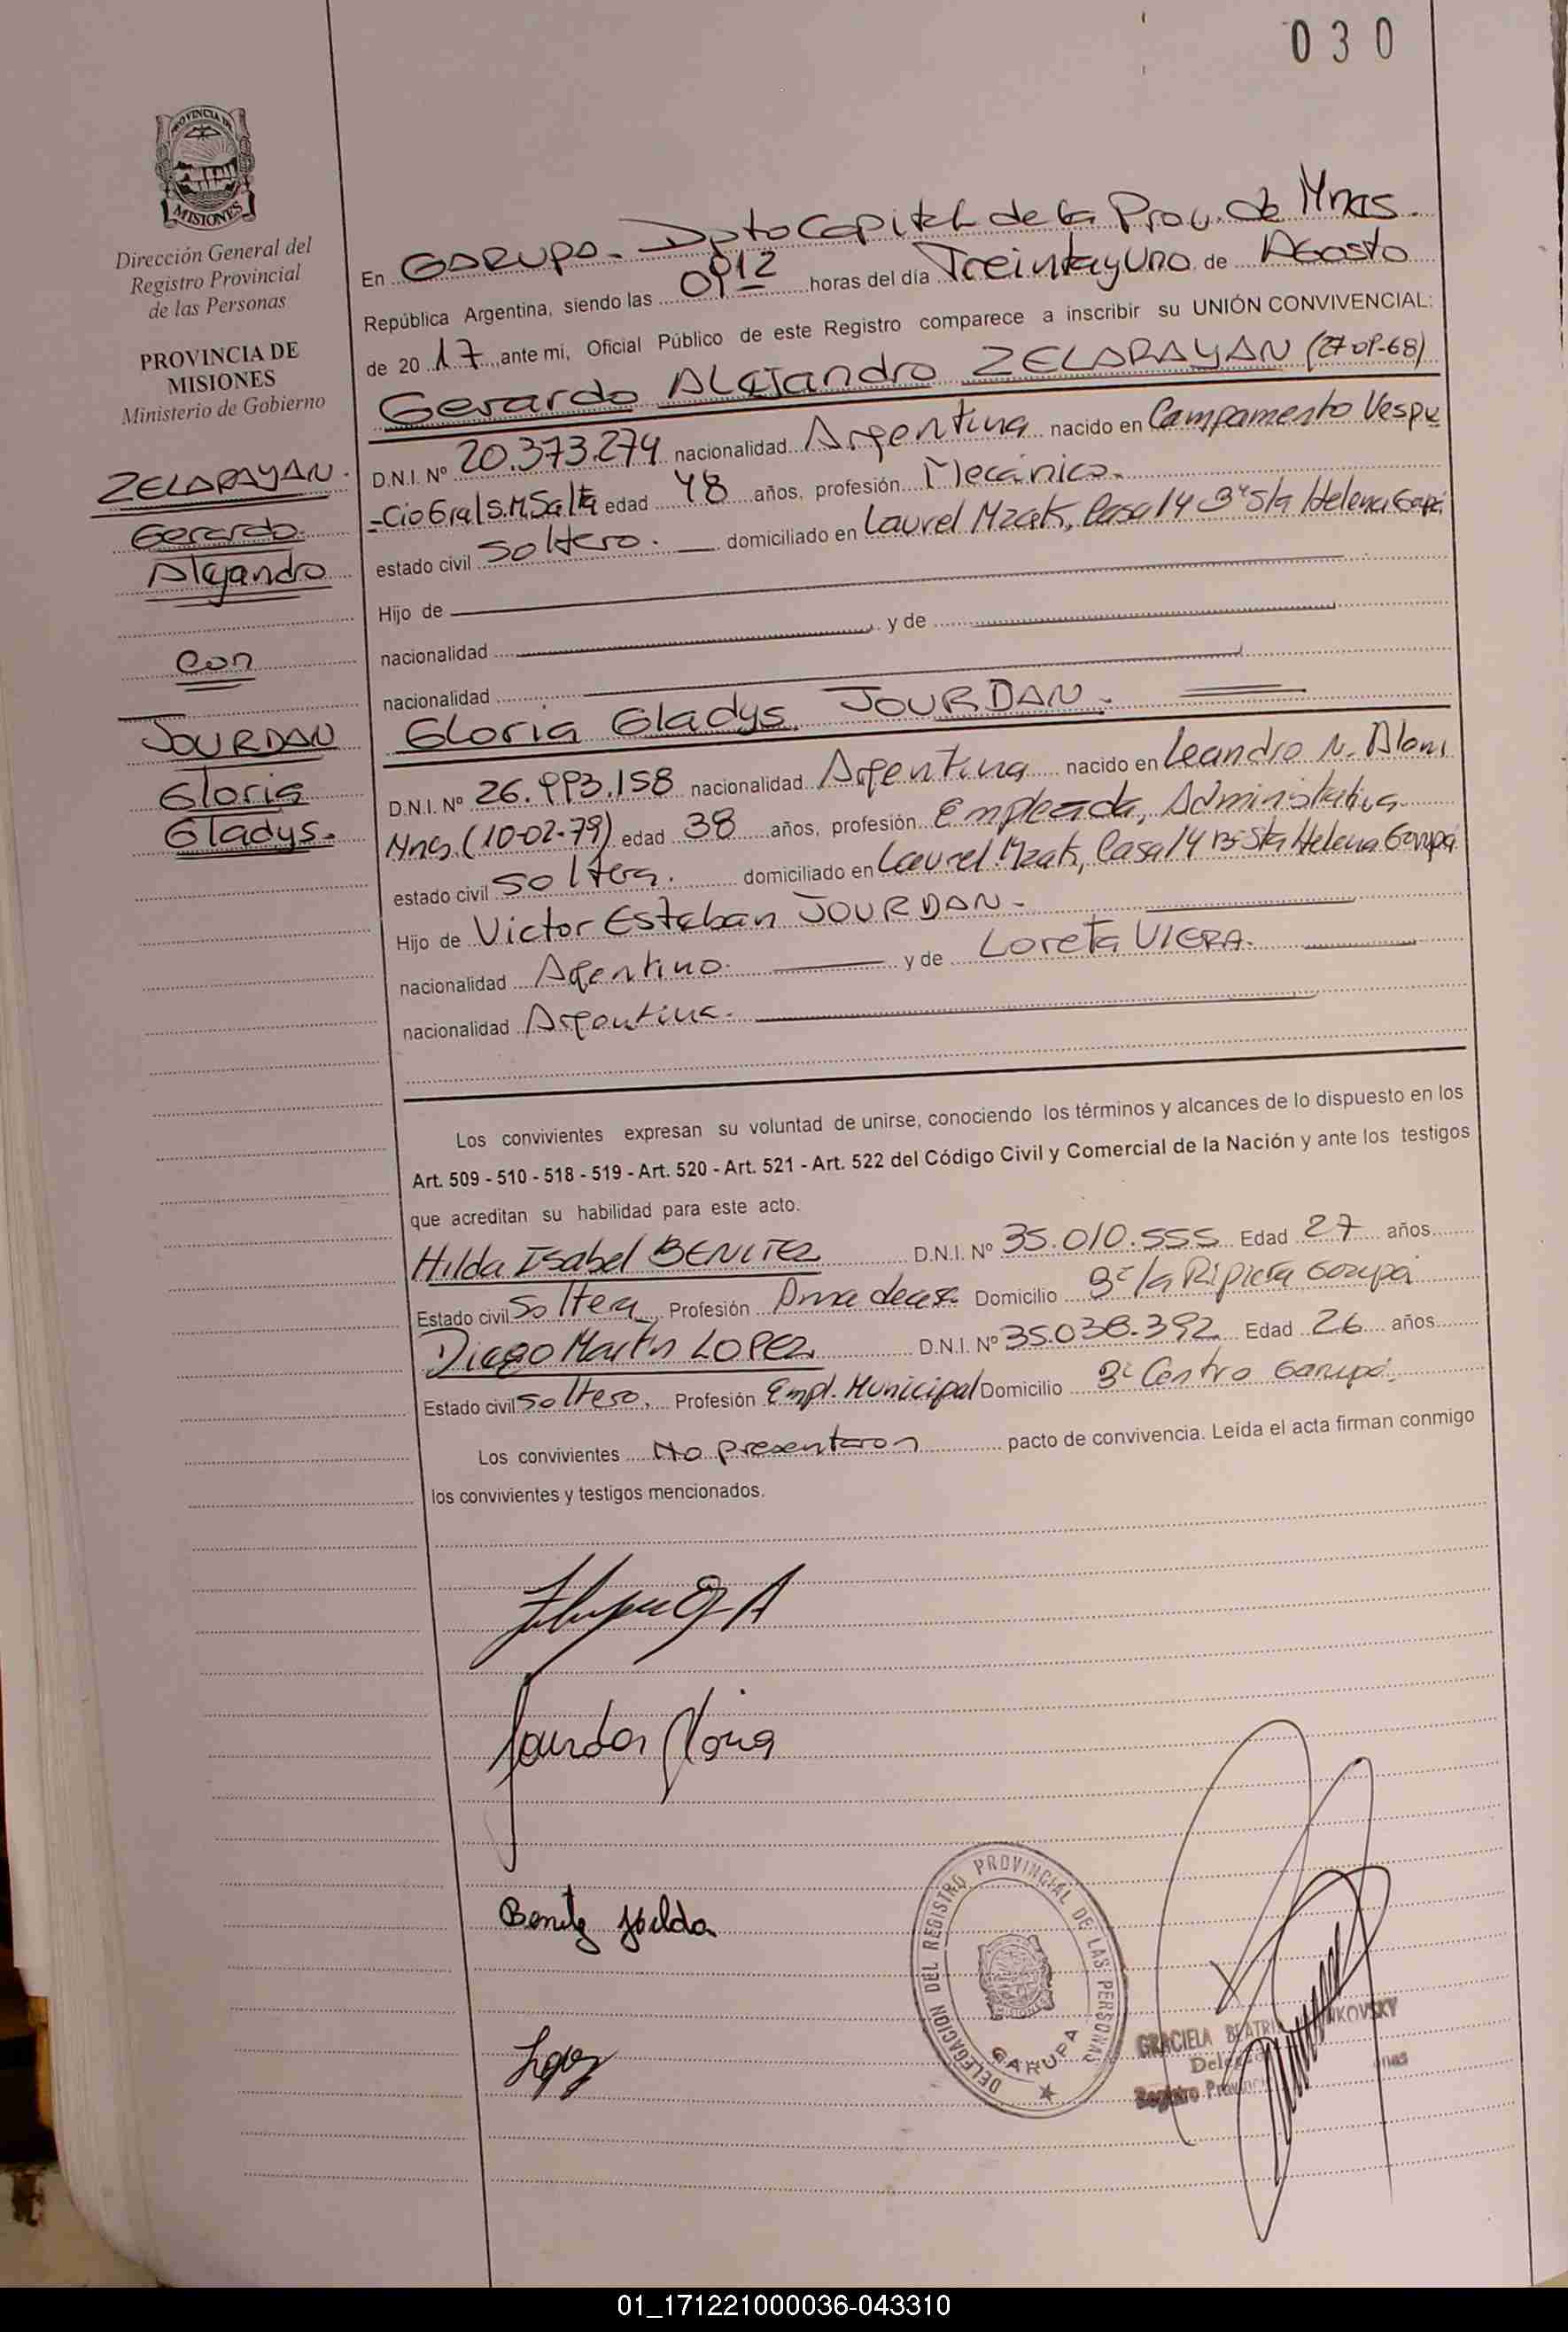 030
PROVINCIA DE
MISIONES
Dirección General del
Registro Provincial
de las Personas
PROVINCIA DE
MISIONES
Ministerio de Gobierno
ZELARAYAN.
Gerardo
Alejandro
con
JOURDAN
Gloria
Gladys.
En GARUPA - Dpto Capital de la Prov. de Mnes.
República Argentina, siendo las 0912 horas del día Treinta y Uno de Agosto
de 20 17 ante mi, Oficial Público de este Registro comparece a inscribir su UNIÓN CONVIVENCIAL:
Gerardo Alejandro ZELARAYAN (27-09-68)
D.N.I. Nº 20.373.274 nacionalidad Argentina nacido en Campamento Vespu
-cio Gral S.M Salta edad 48 años, profesión Mecánico.
estado civil Soltero. domiciliado en Laurel Mzak, Casa 14 Bº Sta Helena Garupá
Hijo de
nacionalidad y de
nacionalidad
Gloria Gladys JOURDAN.
D.N.I. Nº 26.993.158 nacionalidad Argentina nacido en Leandro N. Alem
Mnes. (10-02-79) edad 38 años, profesión Empleada, Administrativa
estado civil Soltera. domiciliado en Laurel Mzak, Casa 14 Bº Sta Helena Garupá
Hijo de Victor Esteban JOURDAN -
nacionalidad Argentino. y de Loreta VIERA.
nacionalidad Argentina.
Los convivientes expresan su voluntad de unirse, conociendo los términos y alcances de lo dispuesto en los
Art. 509 - 510 - 518 - 519 - Art. 520 - Art. 521 - Art. 522 del Código Civil y Comercial de la Nación y ante los testigos
que acreditan su habilidad para este acto.
Hilda Isabel BENITEZ D.N.I. Nº 35.010.555 Edad 27 años
Estado civil Soltera Profesión Ama de casa Domicilio Bº la Ripiera Garupá
Diego Martin LOPEZ D.N.I. Nº 35.038.392 Edad 26 años
Estado civil Soltero, Profesión Empl. Municipal Domicilio Bº Centro Garupá.
Los convivientes No presentaron pacto de convivencia. Leída el acta firman conmigo
los convivientes y testigos mencionados.
Jourdan Gloria
Benitez Hilda
Lopez
DELEGACION DEL REGISTRO PROVINCIAL DE LAS PERSONAS
MISIONES
GARUPA
GRACIELA
Registro
01_171221000036-043310